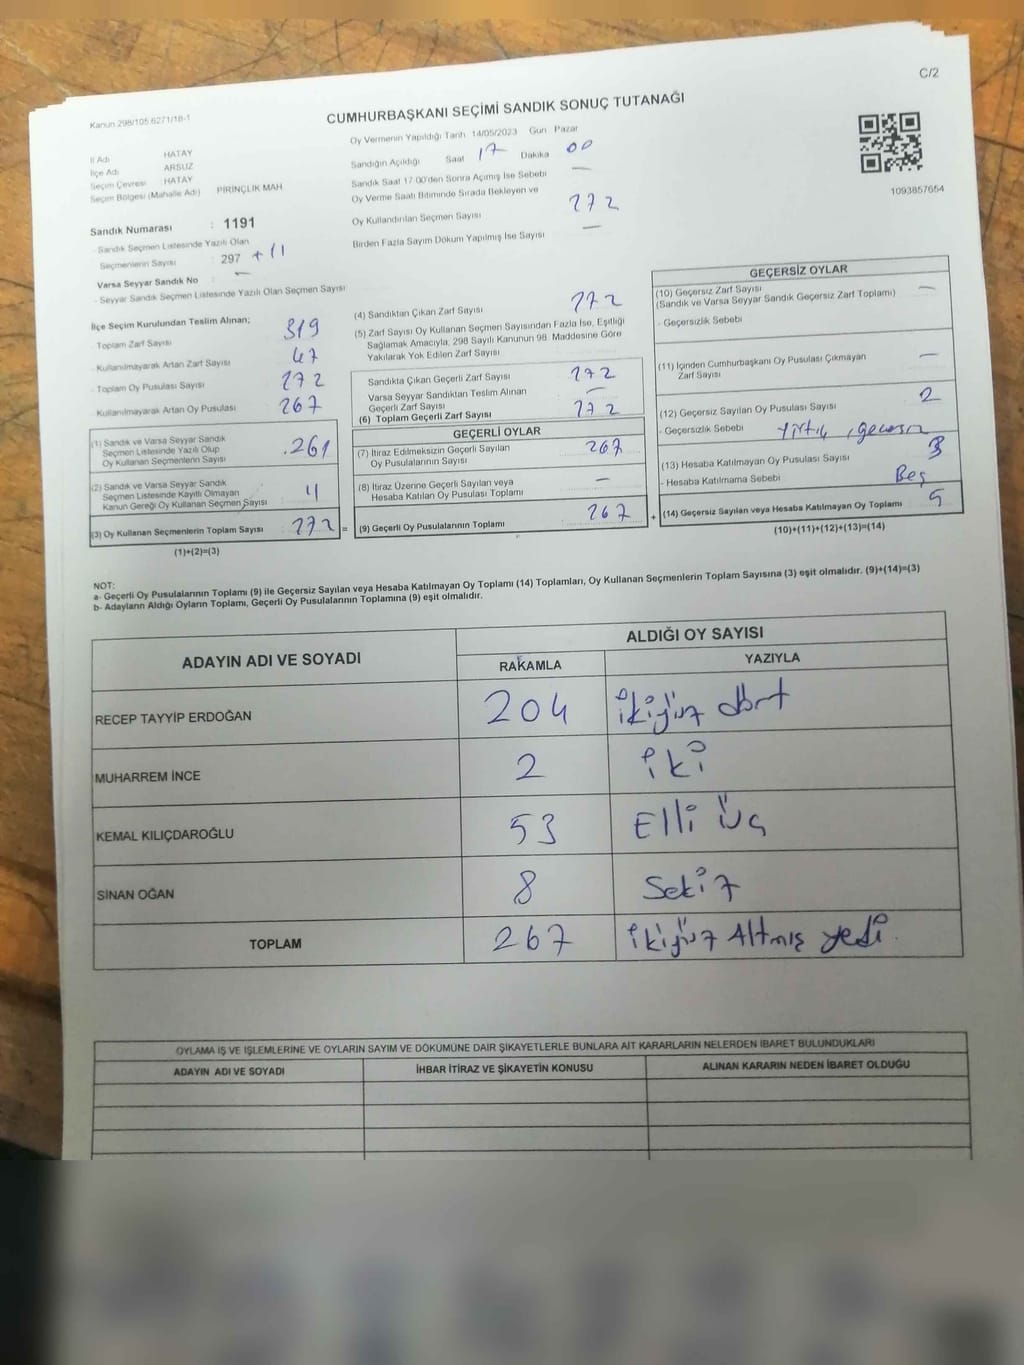 C/2
Kanun 298/105.6271/18-1
CUMHURBAŞKANI SEÇİMİ SANDIK SONUÇ TUTANAĞI
Oy Vermenin Yapıldığı Tarih 14/05/2023 Gün Pazar
İl Adı HATAY
İlçe Adı ARSUZ
Seçim Çevresi : HATAY
Seçim Bölgesi (Mahalle Adı) PİRİNÇLİK MAH
Sandığın Açıldığı Saat 17 Dakika 00
Sandık Saat 17:00'den Sonra Açımış İse Sebebi —
Oy Verme Saati Bitiminde Sırada Bekleyen ve
Oy Kullandırılan Seçmen Sayısı 272
Birden Fazla Sayım Döküm Yapılmış İse Sayısı —
1093857654
Sandık Numarası : 1191
- Sandık Seçmen Listesinde Yazılı Olan
Seçmenlerin Sayısı : 297 + 11
Varsa Seyyar Sandık No : —
- Seyyar Sandık Seçmen Listesinde Yazılı Olan Seçmen Sayısı
İlçe Seçim Kurulundan Teslim Alınan;
- Toplam Zarf Sayısı 319
- Kullanılmayarak Artan Zarf Sayısı 47
- Toplam Oy Pusulası Sayısı 272
- Kullanılmayarak Artan Oy Pusulası 267
(1) Sandık ve Varsa Seyyar Sandık
Seçmen Listesinde Yazılı Olup
Oy Kullanan Seçmenlerin Sayısı 261
(2) Sandık ve Varsa Seyyar Sandık
Seçmen Listesinde Kayıtlı Olmayan
Kanun Gereği Oy Kullanan Seçmen Sayısı 11
(3) Oy Kullanan Seçmenlerin Toplam Sayısı 272 =
(1)+(2)=(3)
(4) Sandıktan Çıkan Zarf Sayısı 272
(5) Zarf Sayısı Oy Kullanan Seçmen Sayısından Fazla İse, Eşitliği
Sağlamak Amacıyla, 298 Sayılı Kanunun 98. Maddesine Göre
Yakılarak Yok Edilen Zarf Sayısı
Sandıkta Çıkan Geçerli Zarf Sayısı 272
Varsa Seyyar Sandıktan Teslim Alınan
Geçerli Zarf Sayısı —
(6) Toplam Geçerli Zarf Sayısı 272
GEÇERLİ OYLAR
(7) İtiraz Edilmeksizin Geçerli Sayılan
Oy Pusulalarının Sayısı 267
(8) İtiraz Üzerine Geçerli Sayılan veya
Hesaba Katılan Oy Pusulası Toplamı —
(9) Geçerli Oy Pusulalarının Toplamı 267 +
GEÇERSİZ OYLAR
(10) Geçersiz Zarf Sayısı —
(Sandık ve Varsa Seyyar Sandık Geçersiz Zarf Toplamı)
- Geçersizlik Sebebi
(11) İçinden Cumhurbaşkanı Oy Pusulası Çıkmayan
Zarf Sayısı —
(12) Geçersiz Sayılan Oy Pusulası Sayısı 2
- Geçersizlik Sebebi yırtık,
(13) Hesaba Katılmayan Oy Pusulası Sayısı 3
- Hesaba Katılmama Sebebi Beş
(14) Geçersiz Sayılan veya Hesaba Katılmayan Oy Toplamı 5
(10)+(11)+(12)+(13)=(14)
NOT:
a- Geçerli Oy Pusulalarının Toplamı (9) ile Geçersiz Sayılan veya Hesaba Katılmayan Oy Toplamı (14) Toplamları, Oy Kullanan Seçmenlerin Toplam Sayısına (3) eşit olmalıdır. (9)+(14)=(3)
b- Adayların Aldığı Oyların Toplamı, Geçerli Oy Pusulalarının Toplamına (9) eşit olmalıdır.
ADAYIN ADI VE SOYADI ALDIĞI OY SAYISI
RAKAMLA YAZIYLA
RECEP TAYYİP ERDOĞAN 204 ikiyüz dört
MUHARREM İNCE 2 iki
KEMAL KILIÇDAROĞLU 53 Elli üç
SİNAN OĞAN 8 Sekiz
TOPLAM 267 ikiyüz Altmış yedi
OYLAMA İŞ VE İŞLEMLERİNE VE OYLARIN SAYIM VE DÖKÜMÜNE DAİR ŞİKAYETLERLE BUNLARA AİT KARARLARIN NELERDEN İBARET BULUNDUKLARI
ADAYIN ADI VE SOYADI İHBAR İTİRAZ VE ŞİKAYETİN KONUSU ALINAN KARARIN NEDEN İBARET OLDUĞU